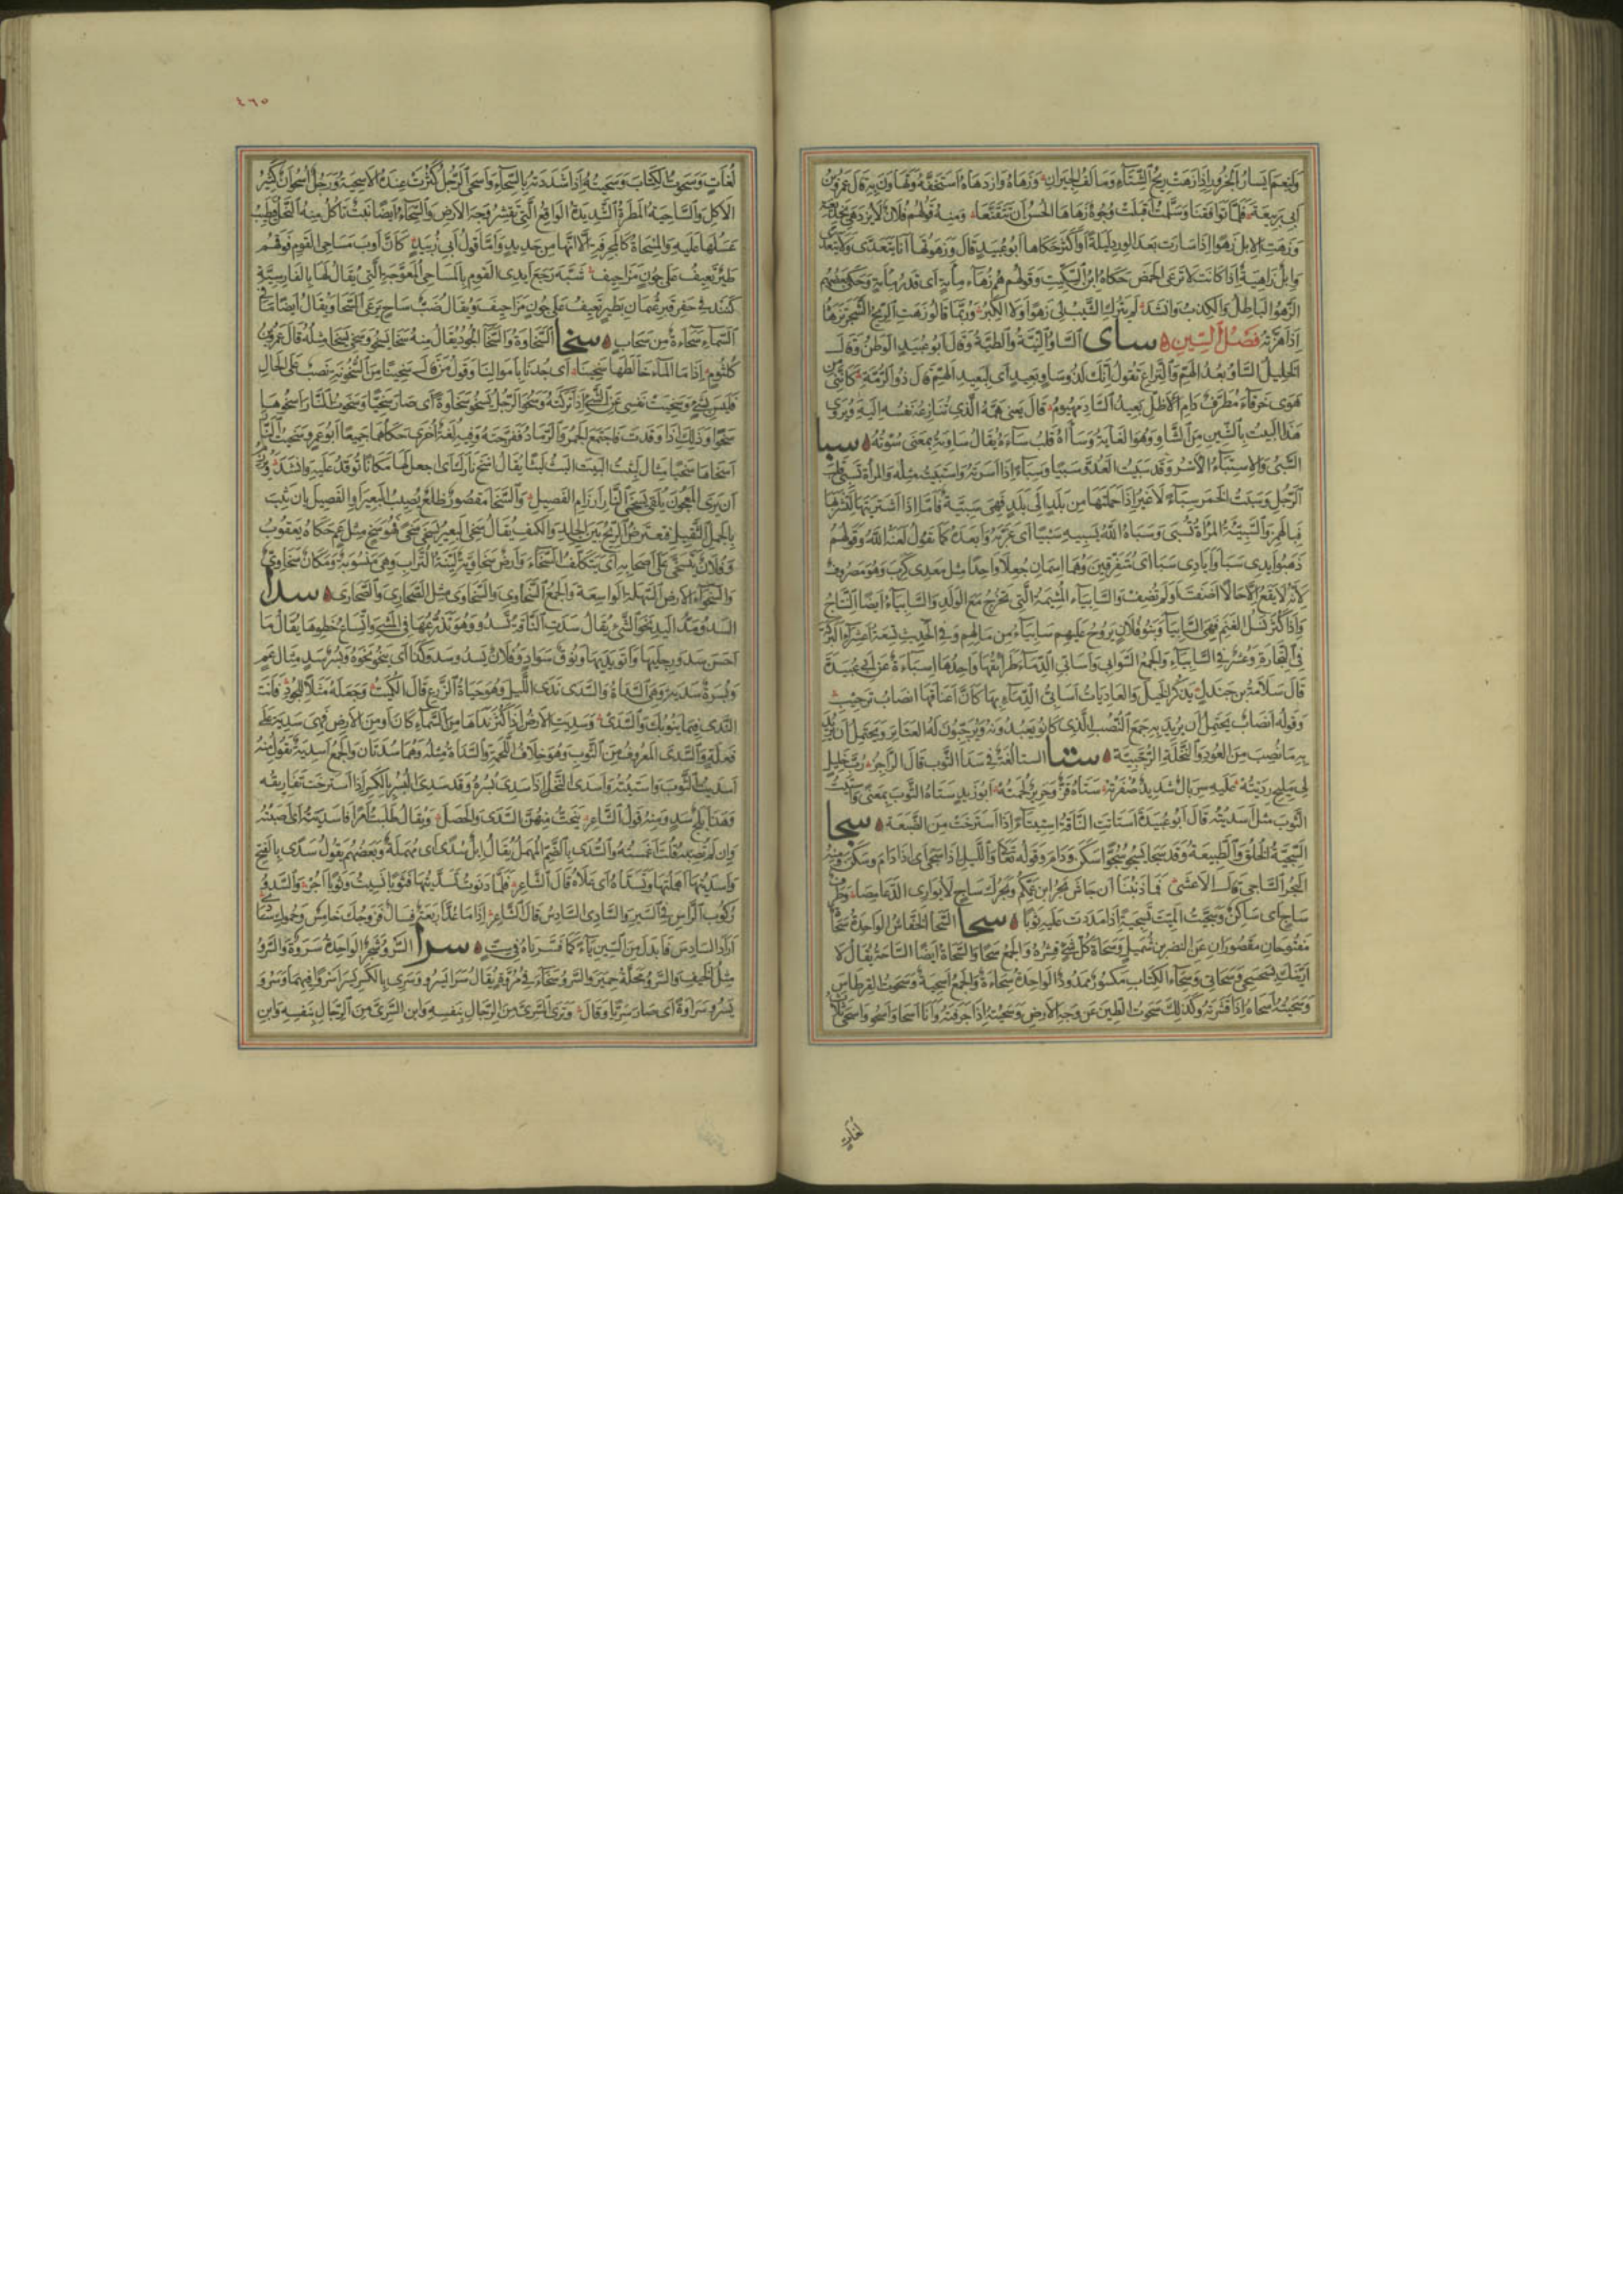 وَلَنِعْمَ أَيْسَارُ الجَزُورِ إِذَا زَهَتْ رِيحُ الشِّتَاءِ وَمَأْلَفُ الجِيرَانِ وَزَهَاهُ وَازْدَهَاهُ اسْتَخَفَّهُ وَتَهَاوَنَ بِهِ قَالَ عُمَرُ بْنُ
أَبِي رَبِيعَةَ فَلَمَّا تَوَاقَفْنَا وَسَلَّمْتُ أَقْبَلَتْ وُجُوهٌ زَهَاهَا الحُسْنُ أَنْ تَتَقَنَّعَا وَمِنْهُ قَوْلُهُمْ فُلَانٌ لَا يُزْدَهَى بِخَدِيعَةٍ
وَزَهَتِ الإِبِلُ زَهْوًا إِذَا سَارَتْ بَعْدَ الوِرْدِ لَيْلَةً أَوْ أَكْثَرَ حَكَاهَا أَبُو عُبَيْدٍ قَالَ وَزَهَوْتُهَا أَنَا يَتَعَدَّى وَلَا يَتَعَدَّى
وَإِبِلٌ زَاهِيَةٌ إِذَا كَانَتْ لَا تَرْعَى الحَمْضَ حَكَاهُ ابْنُ السِّكِّيتِ وَقَوْلُهُمْ هُمْ زُهَاءُ مِائَةٍ أَيْ قَدْرُ مِائَةٍ وَحَكَى بَعْضُهُمْ
الزَّهْوُ البَاطِلُ وَالكَذِبُ وَأَنْشَدَ لَمْ يَتْرُكِ الشَّيْبُ لِي زَهْوًا وَلَا الكِبَرُ وَرُبَّمَا قَالُوا زَهَتِ الرِّيحُ الشَّجَرَ تَزْهَاهُ
إِذَا هَزَّتْهُ فَصْلُ السِّينِ سأى السَّأْوُ النِّيَّةُ وَالطِّيَّةُ وَقَالَ أَبُو عُبَيْدٍ الوَطَنُ وَقَالَ
الخَلِيلُ السَّأْوُ بُعْدُ الهَمِّ وَالنِّزَاعِ تَقُولُ إِنَّكَ لَذُو سَأْوٍ بَعِيدٍ أَيْ لَبَعِيدُ الهَمِّ قَالَ ذُو الرُّمَّةِ كَأَنَّنِي مِنْ
هَوَى خَرْقَاءَ مُطَّرَفٌ دَامِي الأَظَلِّ بَعِيدُ السَّأْوِ مَهْيُومُ قَالَ يَعْنِي هَمَّهُ الَّذِي تُنَازِعُهُ نَفْسُهُ إِلَيْهِ وَيُرْوَى
هَذَا البَيْتُ بِالشِّينِ مِنَ الشَّأْوِ وَهُوَ الغَايَةُ وَسَآهُ قَلْبُ سَاءَهُ يُقَالُ سَأَوْتُهُ بِمَعْنَى سُؤْتُهُ سبا
السَّبْيُ وَالاِسْتِبَاءُ الأَسْرُ وَقَدْ سَبَيْتُ العَدُوَّ سَبْيًا وَسِبَاءً إِذَا أَسَرْتَهُ وَاسْتَبَيْتُ مِثْلُهُ وَالمَرْأَةُ تَسْبِي قَلْبَ
الرَّجُلِ وَسَبَيْتُ الخَمْرَ سِبَاءً لَا غَيْرُ إِذَا حَمَلْتَهَا مِنْ بَلَدٍ إِلَى بَلَدٍ فَهِيَ سَبِيَّةٌ فَأَمَّا إِذَا اشْتَرَيْتَهَا لِتَشْرَبَهَا
فَبِالهَمْزِ وَالسَّبِيَّةُ المَرْأَةُ تُسْبَى وَسَبَاهُ اللهُ يَسْبِيهِ سَبْيًا أَيْ غَرَّبَهُ وَأَبْعَدَهُ كَمَا تَقُولُ لَعَنَهُ اللهُ وَقَوْلُهُمْ
ذَهَبُوا أَيْدِي سَبَا وَأَيَادِي سَبَا أَيْ مُتَفَرِّقِينَ وَهُمَا اسْمَانِ جُعِلَا وَاحِدًا مِثْلُ مَعْدِي كَرِبَ وَهُوَ مَصْرُوفٌ
لِأَنَّهُ لَا يَقَعُ إِلَّا حَالًا أَضَفْتَ أَوْ لَمْ تُضِفْ وَالسَّابِيَاءُ المَشِيمَةُ الَّتِي تَخْرُجُ مَعَ الوَلَدِ وَالسَّابِيَاءُ أَيْضًا النِّتَاجُ
وَإِذَا كَثُرَ نَسْلُ الغَنَمِ فَهِيَ السَّابِيَاءُ وَبَنُو فُلَانٍ يَرُوحُ عَلَيْهِمْ سَابِيَاءُ مِنْ مَالِهِمْ وَفِي الحَدِيثِ تِسْعَةُ أَعْشِرَاءِ البَرَكَةِ
فِي التِّجَارَةِ وَعُشْرٌ فِي السَّابِيَاءِ وَالجَمْعُ السَّوَابِي وَأَسَابِيُّ الدِّمَاءِ طَرَائِقُهَا وَاحِدُهَا إِسْبَاءَةٌ عَنْ أَبِي عُبَيْدَةَ
قَالَ سَلَامَةُ بْنُ جَنْدَلٍ يَذْكُرُ الخَيْلَ وَالعَادِيَاتُ أَسَابِيُّ الدِّمَاءِ بِهَا كَأَنَّ أَعْنَاقَهَا أَنْصَابُ تَرْجِيبِ
وَقَوْلُهُ أَنْصَابُ يَحْتَمِلُ أَنْ يُرِيدَ بِهِ جَمْعَ النُّصُبِ الَّذِي كَانُوا يَعْبُدُونَهُ وَيُرَجِّبُونَ لَهُ العَتَائِرَ وَيَحْتَمِلُ أَنْ يُرِيدَ
بِهِ مَا نُصِبَ مِنَ العُودِ وَالنَّخْلَةِ الرُّجَبِيَّةِ ستا السَّتَا لُغَةٌ فِي سَدَا الثَّوْبِ قَالَ الرَّاجِزُ رُبَّ خَلِيلٍ
لِي مَلِيحٍ رِدْيَتُهْ عَلَيْهِ سِرْبَالٌ شَدِيدٌ صُفْرَتُهْ سَتَاهُ قَزٌّ وَحَرِيرٌ لُحْمَتُهْ أَبُو زَيْدٍ سَتَاةُ الثَّوْبِ بِمَعْنًى وَأَسْتَيْتُ
الثَّوْبَ مِثْلُ أَسْدَيْتُهُ قَالَ أَبُو عُبَيْدَةَ اسْتَاتَتِ النَّاقَةُ اسْتِيتَاءً إِذَا اسْتَرْخَتْ مِنَ الضَّبَعَةِ سجا
السَّجِيَّةُ الخُلُقُ وَالطَّبِيعَةُ وَقَدْ سَجَا يَسْجُو سُجُوًّا سَكَنَ وَدَامَ وَقَوْلُهُ تَعَالَى وَاللَّيْلِ إِذَا سَجَى أَيْ إِذَا دَامَ وَسَكَنَ وَمِنْهُ
البَحْرُ السَّاجِي قَالَ الأَعْشَى فَمَا ذَنْبُنَا أَنْ جَاشَ بَحْرُ ابْنِ عَمِّكُمْ وَبَحْرُكَ سَاجٍ لَا يُوَارِي الدَّعَامِصَا وَطَرْفٌ
سَاجٍ أَيْ سَاكِنٌ وَسَجَّيْتُ المَيِّتَ تَسْجِيَةً إِذَا مَدَدْتَ عَلَيْهِ ثَوْبًا سحا السَّحَا الخُفَّاشُ الوَاحِدَةُ سَحَاةٌ
مَفْتُوحَانِ مَقْصُورَانِ عَنِ النَّضْرِ بْنِ شُمَيْلٍ وَسَحَاةُ كُلِّ شَيْءٍ قِشْرُهُ وَالجَمْعُ سَحًا وَالسَّحَاةُ أَيْضًا السَّاحَةُ يُقَالُ لَا
أَرَيَنَّكَ بِسَحْسَحِي وَسَحَاتِي وَسِحَاءُ الكِتَابِ مَكْسُورٌ مَمْدُودٌ الوَاحِدَةُ سِحَاءَةٌ وَالجَمْعُ أَسْحِيَةٌ وَسَحَوْتُ القِرْطَاسَ
وَسَحَيْتُهُ أَسْحَاهُ إِذَا قَشَرْتَهُ وَكَذَلِكَ سَحَوْتُ الطِّينَ عَنْ وَجْهِ الأَرْضِ وَسَحَيْتُهُ إِذَا جَرَفْتَهُ وَأَنَا أَسْحَا وَأَسْحُو وَأَسْحِي ثَلَاثُ
لُغَاتٍ
٤٦٥
لُغَاتٍ وَسَحَوْتُ الكِتَابَ وَسَحَيْتُهُ إِذَا شَدَدْتَهُ بِالسِّحَاءِ وَأَسْحَى الرَّجُلُ كَثُرَتْ عِنْدَهُ الأَسْحِيَةُ وَرَجُلٌ أُسْحُوَانٌ كَثِيرُ
الأَكْلِ وَالسَّاحِيَةُ المَطْرَةُ الشَّدِيدَةُ الوَاقِعُ الَّتِي تَقْشِرُ وَجْهَ الأَرْضِ وَالسِّحَاءُ أَيْضًا نَبْتٌ تَأْكُلُ مِنْهُ النَّحْلُ فَيَطِيبُ
عَسَلُهَا عَلَيْهِ وَالمِسْحَاةُ كَالمِجْرَفَةِ إِلَّا أَنَّهَا مِنْ حَدِيدٍ وَأَمَّا قَوْلُ أَبِي زُبَيْدٍ كَأَنَّ أَوْبَ مَسَاحِي القَوْمِ فَوْقَهُمُ
طَيْرٌ تَعِيفُ عَلَى جُونٍ مَزَاحِيفِ شَبَّهَ رَجْعَ أَيْدِي القَوْمِ بِالمَسَاحِي المُعْوَجَّةِ الَّتِي يُقَالُ لَهَا بِالفَارِسِيَّةِ
كَنَنْد فِي حَفْرِ قَبْرِ عُثْمَانَ بِطَيْرٍ تَعِيفُ عَلَى جُونٍ مَزَاحِيفَ وَيُقَالُ ضَبٌّ سَاحٍ يَرْعَى السِّحَا وَيُقَالُ أَيْضًا مَا فِي
السَّمَاءِ سِحَاءَةٌ مِنْ سَحَابٍ سخا السَّخَاوَةُ وَالسَّخَا الجُودُ يُقَالُ مِنْهُ سَخَا يَسْخُو وَسَخِيَ يَسْخَى مِثْلُهُ قَالَ عَمْرُو بْنُ
كُلْثُومٍ إِذَا مَا المَاءُ خَالَطَهَا سَخِينَا أَيْ جُدْنَا بِأَمْوَالِنَا وَقَوْلُ مَنْ قَالَ سَخِينًا مِنَ السُّخُونَةِ نَصْبٌ عَلَى الحَالِ
فَلَيْسَ بِشَيْءٍ وَسَخِيَتْ نَفْسِي عَنِ الشَّيْءِ إِذَا تَرَكْتَهُ وَسَخُوَ الرَّجُلُ يَسْخُو سَخَاوَةً أَيْ صَارَ سَخِيًّا وَسَخَوْتُ النَّارَ أَسْخُوهَا
سَخْوًا وَذَلِكَ إِذَا أُوقِدَتْ فَاجْتَمَعَ الجَمْرُ وَالرَّمَادُ فَفَرَّجْتَهُ وَفِيهِ لُغَةٌ أُخْرَى حَكَاهُمَا جَمِيعًا أَبُو عَمْرٍو سَخَيْتُ النَّارَ
أَسْخَاهَا سَخْيًا مِثَالُ لَبِثْتُ أَلْبَثُ لَبْثًا يُقَالُ اسْخَ نَارَكَ أَيِ اجْعَلْ لَهَا مَكَانًا تُوقَدُ عَلَيْهِ وَأَنْشَدَ
أَنْ يَرَى المَعْجُونَ يُلْقَى بِسَخَى النَّارِ إِرْزَامَ الفَصِيلِ وَالسَّخَا مَقْصُورٌ ظَلْعٌ يُصِيبُ البَعِيرَ أَوِ الفَصِيلَ بِأَنْ يَثِبَ
بِالحِمْلِ الثَّقِيلِ فَتَعْتَرِضُ الرِّيحُ بَيْنَ الجِلْدِ وَالكَتِفِ يُقَالُ سَخِيَ البَعِيرُ يَسْخَى سَخًى فَهُوَ سَخٍ مِثْلُ عَمٍ حَكَاهُ يَعْقُوبُ
وَفُلَانٌ يَتَسَخَّى عَلَى أَصْحَابِهِ أَيْ يَتَكَلَّفُ السَّخَاءَ وَأَرْضٌ سَخَاوِيَّةٌ لَيِّنَةُ التُّرَابِ وَهِيَ مَنْسُوبَةٌ وَمَكَانٌ سَخَاوِيٌّ
وَالسَّخْوَاءُ الأَرْضُ السَّهْلَةُ الوَاسِعَةُ وَالجَمْعُ السَّخَاوِي وَالسَّخَاوَى مِثْلُ الصَّحَارِي وَالصَّحَارَى سدا
السَّدْوُ مَدُّ اليَدِ نَحْوَ الشَّيْءِ يُقَالُ سَدَتِ النَّاقَةُ تَسْدُو وَهُوَ تَذَرُّعُهَا فِي المَشْيِ وَاتِّسَاعُ خَطْوِهَا يُقَالُ مَا
أَحْسَنَ سَدْوَ رِجْلَيْهَا وَأَتْوَ يَدَيْهَا وَنُوقٌ سَوَادٍ وَفُلَانٌ يَسْدُو سَدْوَ كَذَا أَيْ يَنْحُو نَحْوَهُ وَبُسْرٌ سَدٍ مِثَالُ عَمٍ
وَبُسْرَةٌ سَدِيَةٌ وَهِيَ السَّدَاةُ وَالسَّدَى نَدَى اللَّيْلِ وَهُوَ حَيَاةُ الزَّرْعِ قَالَ الكُمَيْتُ وَجَعَلَهُ مَثَلًا لِلْجُودِ فَأَنْتَ
النَّدَى فِيمَا يَنُوبُكَ وَالسَّدَى وَسَدِيَتِ الأَرْضُ إِذَا كَثُرَ نَدَاهَا مِنَ السَّمَاءِ كَانَ أَوْ مِنَ الأَرْضِ فَهِيَ سَدِيَةٌ عَلَى
فَعِلَةٍ وَالسَّدَى المَعْرُوفُ مِنَ الثَّوْبِ وَهُوَ خِلَافُ اللُّحْمَةِ وَالسَّدَاةُ مِثْلُهُ وَهُمَا سُدَتَانِ وَالجَمْعُ أَسْدِيَةٌ تَقُولُ مِنْهُ
أَسْدَيْتُ الثَّوْبَ وَأَسْتَيْتُهُ وَأَسْدَى النَّخْلُ إِذَا سَدِيَ بُسْرُهُ وَقَدْ سَدِيَ البُسْرُ بِالكَسْرِ إِذَا اسْتَرْخَتْ تَفَارِيقُهُ
وَهَذَا بَلَحٌ سَدٍ وَمِنْهُ قَوْلُ الشَّاعِرِ يَنْحَتُّ مِنْهُنَّ السَّدَى وَالحَصَلُ وَيُقَالُ طَلَبْتُ أَمْرًا فَأَسْدَيْتُهُ أَيْ أَصَبْتُهُ
وَإِنْ لَمْ تُصِبْهُ قُلْتَ أَغْمَسْتُهُ وَالسُّدَى بِالضَّمِّ المُهْمَلُ يُقَالُ إِبِلٌ سُدًى أَيْ مُهْمَلَةٌ وَبَعْضُهُمْ يَقُولُ سَدًى بِالفَتْحِ
وَأَسْدَيْتُهَا أَهْمَلْتُهَا وَتَسَدَّاهُ أَيْ عَلَاهُ قَالَ الشَّاعِرُ فَلَمَّا دَنَوْتُ تَسَدَّيْتُهَا فَثَوْبًا نَسِيتُ وَثَوْبًا أَجُرُّ وَالسَّدْوُ
رُكُوبُ الرَّأْسِ فِي السَّيْرِ وَالسَّادِي السَّادِسُ قَالَ الشَّاعِرُ إِذَا مَا عُدَّ أَرْبَعَةٌ فِسَالٌ فَزَوْجُكِ خَامِسٌ وَحَمُوكِ سَادِي
أَرَادَ السَّادِسَ فَأَبْدَلَ مِنَ السِّينِ يَاءً كَمَا فَسَّرْنَاهُ فِي سِتٍّ سرا السَّرْوُ شَجَرٌ الوَاحِدَةُ سَرْوَةٌ وَالسَّرْوُ
مِثْلُ الخَيْفِ وَالسَّرْوُ مَحَلَّةُ حِمْيَرَ وَالسَّرْوُ سَخَاءٌ فِي مُرُوءَةٍ يُقَالُ سَرَا يَسْرُو وَسَرِيَ بِالكَسْرِ يَسْرَى سَرْوًا فِيهِمَا وَسَرُوَ
يَسْرُو سَرَاوَةً أَيْ صَارَ سَرِيًّا وَقَالَ وَتَرَى السَّرِيَّ مِنَ الرِّجَالِ بِنَفْسِهِ وَابْنُ السَّرِيِّ مِنَ الرِّجَالِ بِنَفْسِهِ وَابْنُ